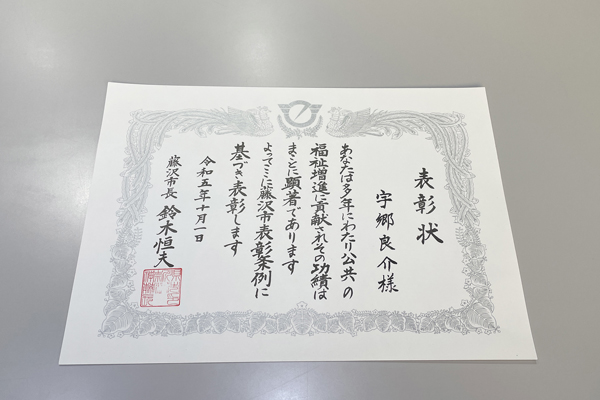 表彰状
宇郷良介様
あなたは多年にわたり公共の
福祉増進に貢献されその功績は
まことに顕著であります
よってここに藤沢市表彰条例に
基づき表彰します
令和五年十月一日
藤沢市長 鈴木恒夫